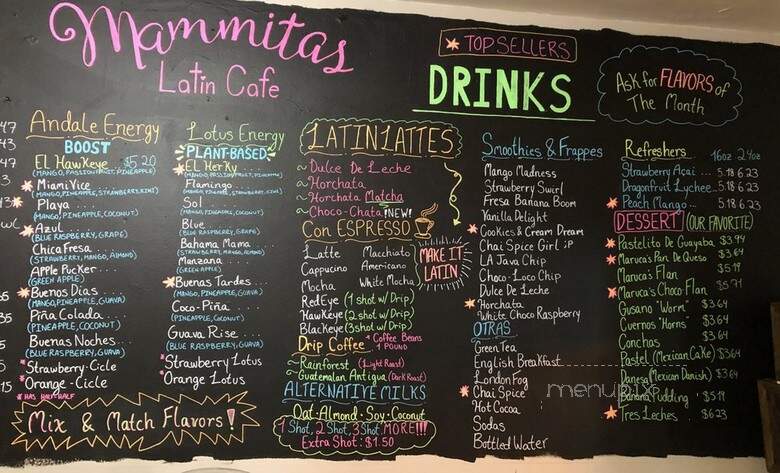 Mammitas
Latin Cafe
TOP SELLERS
DRINKS
Ask for FLAVORS of
The Month
47
43
43
47
Andale Energy
BOOST
El HawKeye $5.20
(MANGO, PASSIONFRUIT, PINEAPPLE)
Miami Vice
(MANGO, PINEAPPLE, STRAWBERRY, KIWI)
Playa
(MANGO, PINEAPPLE, COCONUT)
Azul
(BLUE RASPBERRY, GRAPE)
Chica Fresa
(STRAWBERRY, MANGO, ALMOND)
Apple Pucker...
(GREEN APPLE)
Buenos Dias...
(MANGO, PINEAPPLE, GUAVA)
Piña Colada...
(PINEAPPLE, COCONUT)
Buenas Noches...
(BLUE RASPBERRY, GUAVA)
Strawberry-Cicle
Orange-Cicle
* HAS HALF HALF
Mix & Match Flavors!
Lotus Energy
PLANT-BASED
El HerKy
(MANGO, PASSION FRUIT, PINEAPPLE)
Flamingo...
(MANGO, PINEAPPLE, STRAWBERRY, KIWI)
Sol
(MANGO, PINEAPPLE, COCONUT)
Blue
(BLUE RASPBERRY, GRAPE)
Bahama Mama
(STRAWBERRY, MANGO, ALMOND)
Manzana...
(GREEN APPLE)
Buenas Tardes...
(MANGO, PINEAPPLE, GUAVA)
Coco-Piña...
(PINEAPPLE, COCONUT)
Guava Rise...
(BLUE RASPBERRY, GUAVA)
Strawberry Lotus
Orange Lotus
LATIN LATTES
~Dulce De Leche
~Horchata
~Horchata Matcha
~Choco-Chata NEW!
Con ESPRESSO
Latte Macchiato
Cappucino Americano
Mocha White Mocha
RedEye (1 shot w/ Drip)
HawKeye (2 shot w/ Drip)
BlacKeye (3 shot w/ Drip)
MAKE IT
LATIN
Drip Coffee + Coffee Beans
1 POUND
~Rainforest (Light Roast)
~Guatemalan Antigua (Dark Roast)
ALTERNATIVE MILKS
Oat · Almond · Soy · Coconut
1 Shot, 2 Shot, 3 Shot MORE!!!
Extra Shot: $1.50
Smoothies & Frappes
Mango Madness
Strawberry Swirl
Fresa Banana Boom
Vanilla Delight
Cookies & Cream Dream
Chai Spice Girl :P
LA Java Chip
Choco-Loco Chip
Dulce De Leche
Horchata
White Choco Raspberry
OTRAS
Green Tea
English Breakfast
London Fog
Chai Spice
Hot Cocoa
Sodas
Bottled Water
Refreshers 16oz 24oz
Strawberry Açai... 5.18 6.23
Dragonfruit Lychee.. 5.18 6.23
Peach Mango... 5.18 6.23
DESSERT (OUR FAVORITE)
Pastelito De Guayaba $3.94
Maruca's Pan De Queso $3.64
Maruca's Flan $5.19
Maruca's Choco-Flan $5.71
Gusano "Worm" $3.64
Cuernos "Horns" $3.64
Conchas $3.64
Pastel (Mexican Cake) $3.64
Danesa (Mexican Danish) $3.64
Banana Pudding $5.19
Tres Leches $6.23
menupix